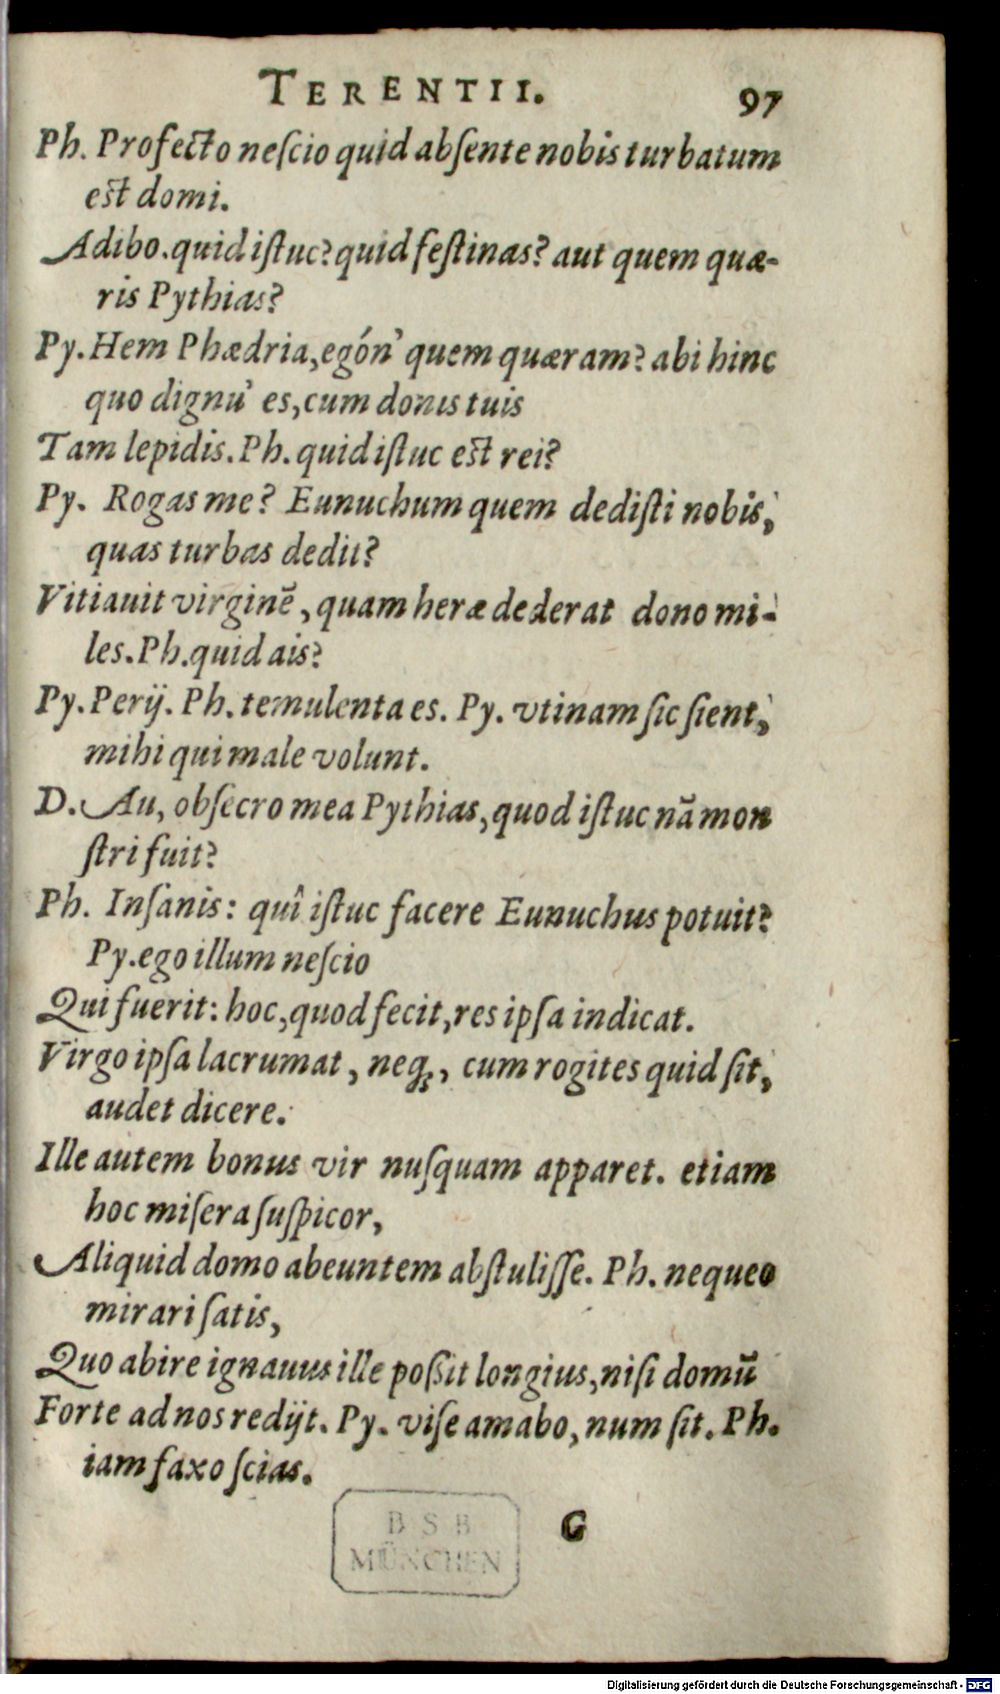 TERENTII. 97
Ph. Profecto neſcio quid abſente nobis turbatum
eſt domi.
Adibo. quid iſtuc? quid feſtinas? aut quem quæ-
ris Pythias?
Py. Hem Phædria, egón' quem quæram? abi hinc
quo dignu' es, cum donis tuis
Tam lepidis. Ph. quid iſtuc eſt rei?
Py. Rogas me? Eunuchum quem dediſti nobis,
quas turbas dedit?
Vitiauit virginē, quam heræ dederat dono mi-
les. Ph. quid ais?
Py. Perij. Ph. temulenta es. Py. vtinam ſic ſient,
mihi qui male volunt.
D. Au, obſecro mea Pythias, quod iſtuc nā mon
ſtri fuit?
Ph. Inſanis: quî iſtuc facere Eunuchus potuit?
Py. ego illum neſcio
Qui fuerit: hoc, quod fecit, res ipſa indicat.
Virgo ipſa lacrumat, neq;, cum rogites quid ſit,
audet dicere.
Ille autem bonus vir nuſquam apparet. etiam
hoc miſera ſuſpicor,
Aliquid domo abeuntem abſtuliſſe. Ph. nequeo
mirari ſatis,
Quo abire ignauus ille poßit longius, niſi domū
Forte ad nos redijt. Py. viſe amabo, num ſit. Ph.
iam faxo ſcias.
G
B S B
MÜNCHEN
Digitalisierung gefördert durch die Deutsche Forschungsgemeinschaft - DFG